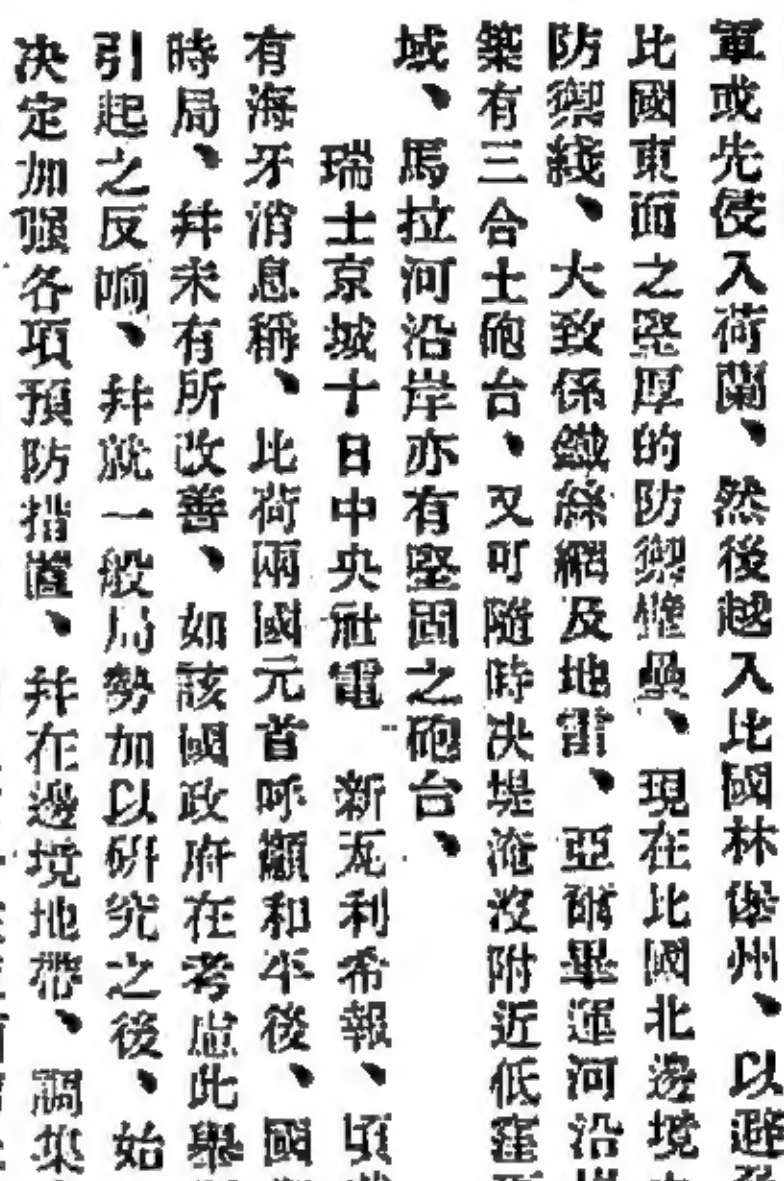 軍或先侵入荷蘭、然後越入比國林堡州、以避
比國東面之堅厚的防禦堡壘、現在比國北邊境
防禦綫、大致係鐵絲網及地雷、亞爾畢運河沿
築有三合土砲台、又可隨時決堤淹沒附近低窪
域、馬拉河沿岸亦有堅固之砲台、
瑞士京城十日中央社電 新瓦利希報、頃
有海牙消息稱、比荷兩國元首呼籲和平後、國
時局、幷未有所改善、如該國政府在考慮此舉
引起之反响、幷就一般局勢加以研究之後、始
決定加强各項預防措置、幷在邊境地帶、調集